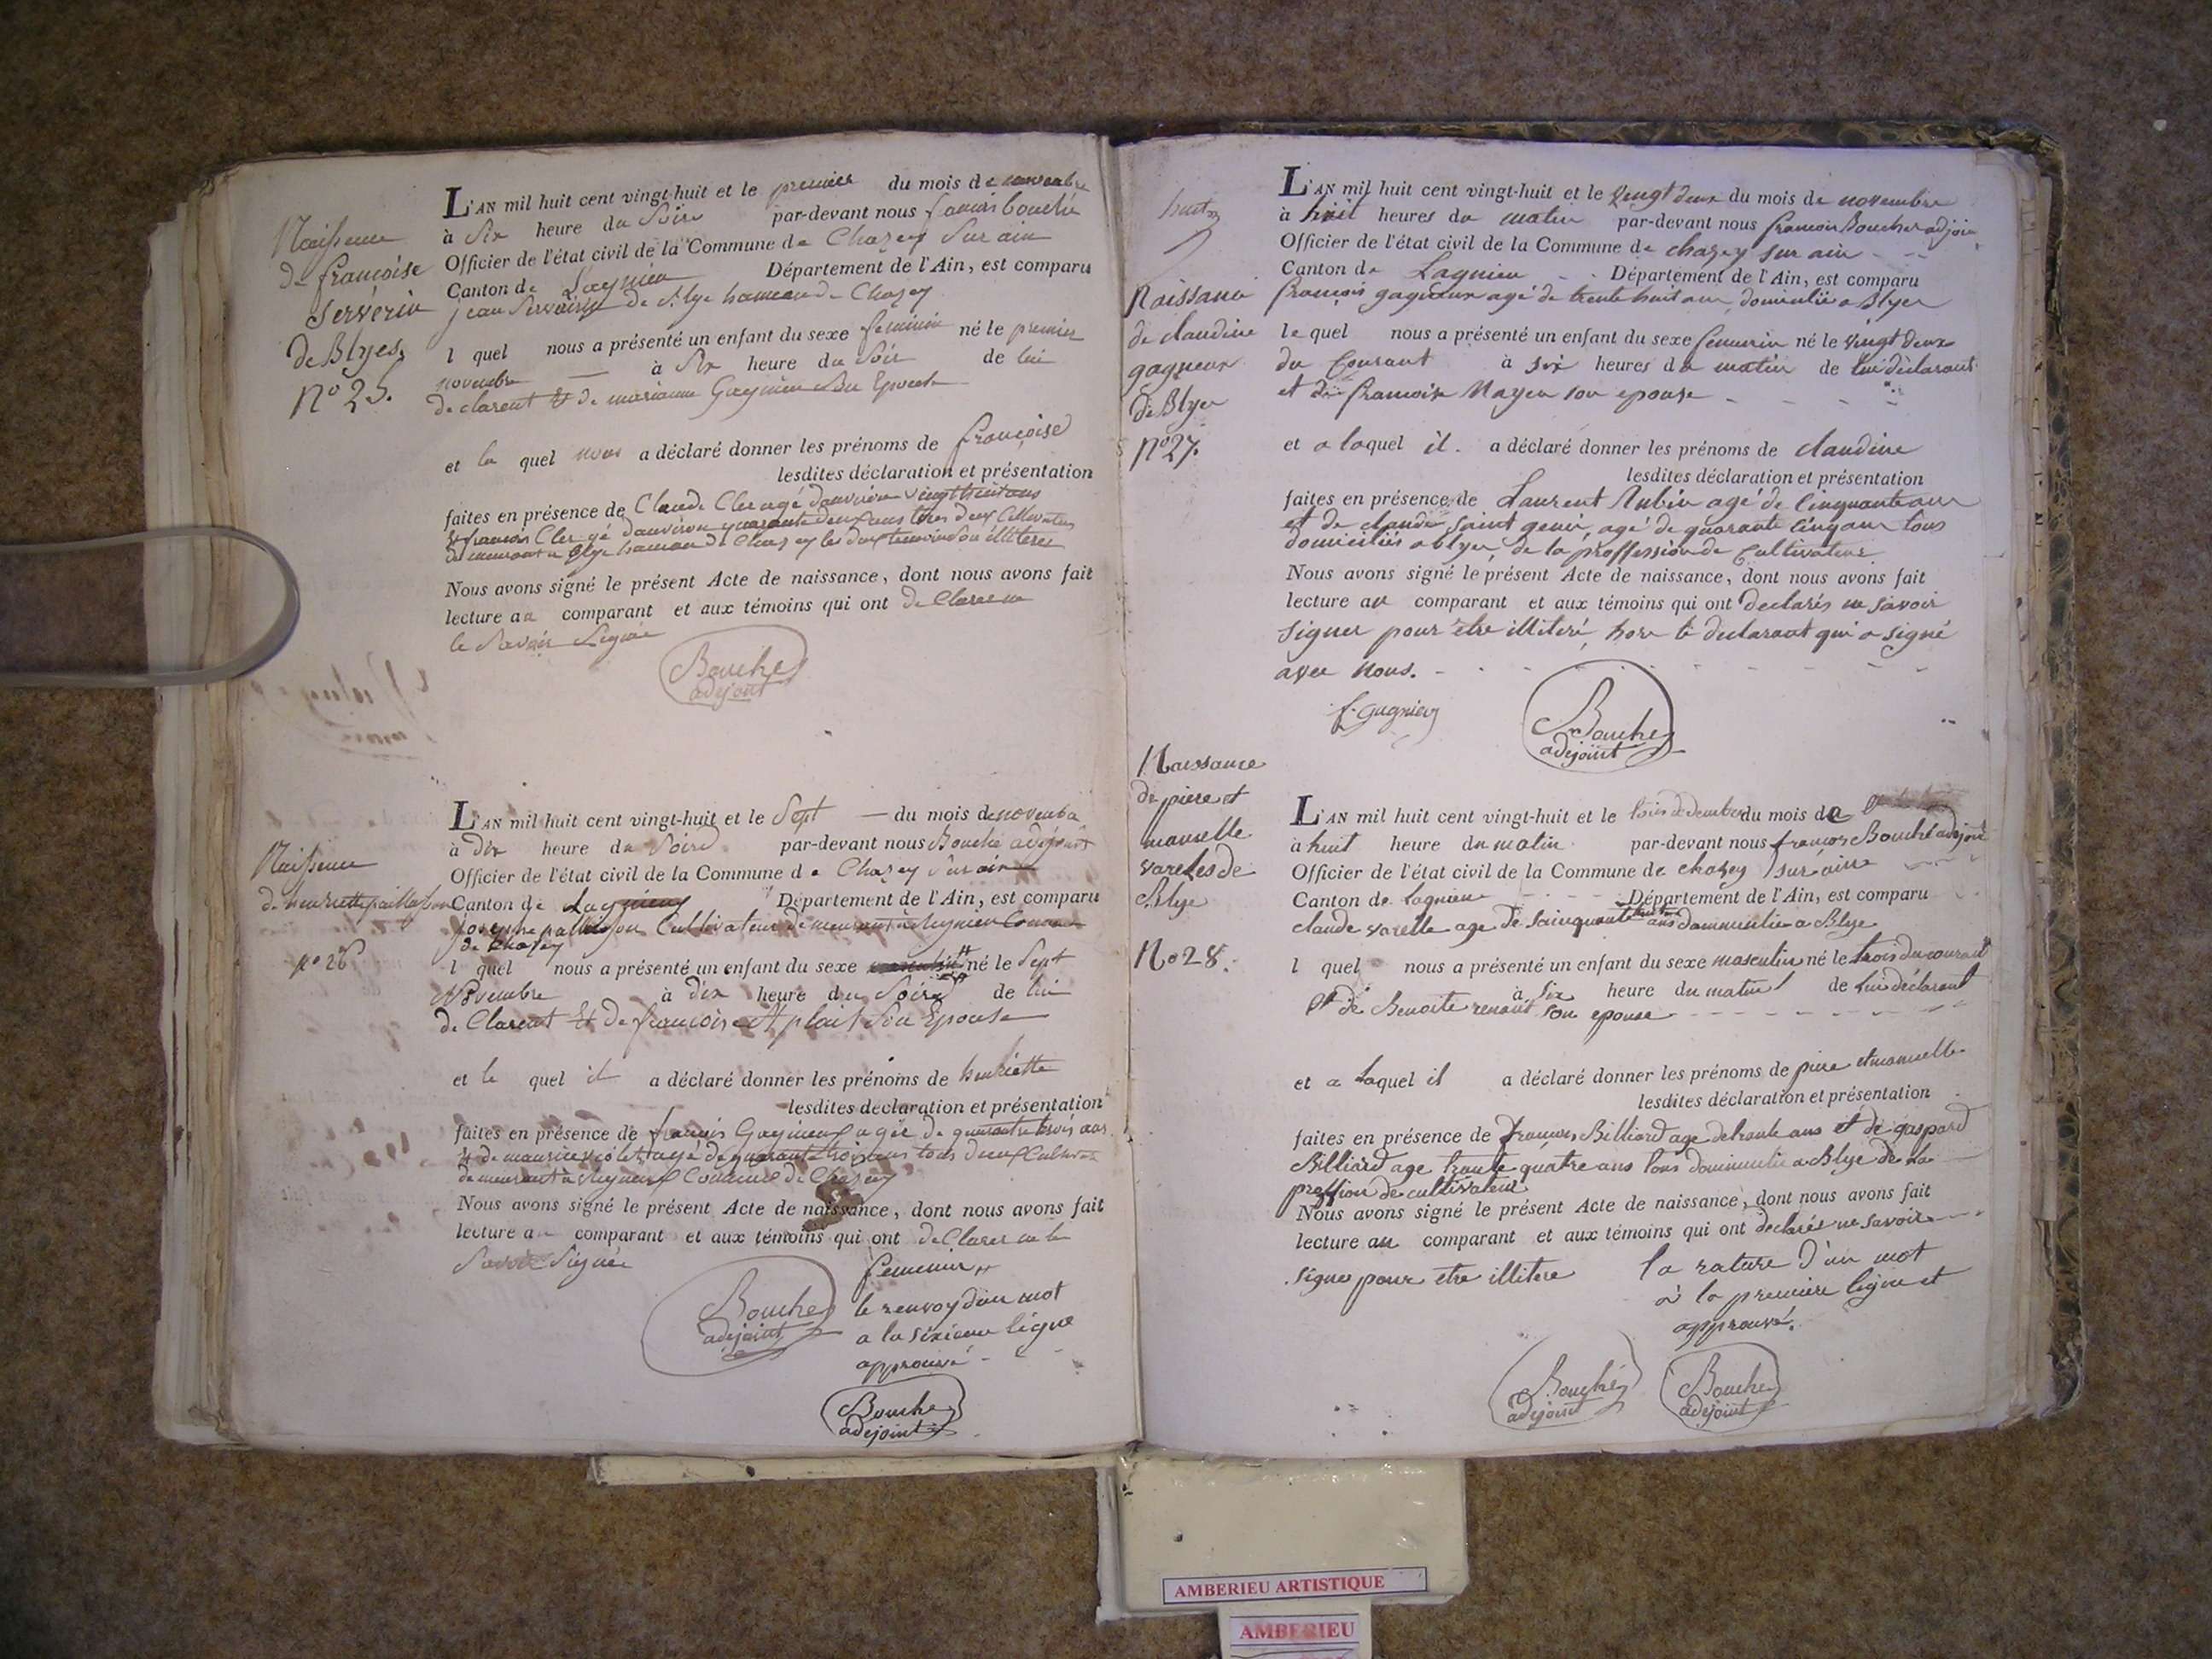 Naissence
de françoise
serverin
de Blyes
N° 25.
L'AN mil huit cent vingt-huit et le premier du mois de novembre
à Six heure du Soire par-devant nous françois bouché
Officier de l'état civil de la Commune de Chazey Sur ain
Canton de Lagnieu Département de l'Ain, est comparu
jean de Blye hameau de Chazey
l quel nous a présenté un enfant du sexe feminin né le premier
novembre à Six heure du Soir de lui
de clarent et de marianne Son Epouse
et la quel nous a déclaré donner les prénoms de françoise
lesdites déclaration et présentation
faites en présence de Claude Cler agé d'anviron vingt huit ans
et françois Cler gé d'anviron quarante deux ans tous deux Cultivateurs
demeurant a Blye hameau de Chazey les deux temoins son illiteres
Nous avons signé le présent Acte de naissance, dont nous avons fait
lecture au comparant et aux témoins qui ont de Clarer ne
le Savoir Signé
Bouché
adejoint
Naissence
de henriette paillasson
n° 26
L'AN mil huit cent vingt-huit et le Sept du mois de novembre
à dix heure du Soire par-devant nous Bouché adejoint
Officier de l'état civil de la Commune de Chazey Sur ain
Canton de Lagnieu Département de l'Ain, est comparu
Cultivateur demeurant à
de Chazey
l quel nous a présenté un enfant du sexe né le Sept
Novembre à dix heure du Soire de lui
de Clarent Et De françoise Son Epouse
et le quel il a déclaré donner les prénoms de henriette
lesdites declaration et présentation
faites en présence de françois agée de quarante trois ans
et de maurice violet agé de quarante trois ans tous deux Cultivat
demeurant à Commune de Chazey
Nous avons signé le présent Acte de naissance, dont nous avons fait
lecture a comparant et aux témoins qui ont de Clarer ne le
Savoir Signée
Bouché
adejoint
femenin
le renvoy d'un mot
a la sixieme ligne
approuvé
Bouché
adejoint
huit
Naissance
de claudine
gagneux
de Blyes
N° 27.
L'AN mil huit cent vingt-huit et le vingt deux du mois de novembre
à huit heures du matin par-devant nous francois Bouché adjoin
Officier de l'état civil de la Commune de chazey sur ain
Canton de Lagnieu Département de l'Ain, est comparu
françois gagneux agé de trente huit ans, domicilié a Blyes
le quel nous a présenté un enfant du sexe femenin né le vingt deux
du Courant à six heures du matin de lui déclarant
et de francoise Mayen son epouse
et a laquel il a déclaré donner les prénoms de claudine
lesdites déclaration et présentation
faites en présence de Laurent Aubin agé de Cinquante ans
et de claude saint genis, agé de quarante cinq ans tous
domiciliés a blyes, de la proffession de Cultivateur
Nous avons signé le présent Acte de naissance, dont nous avons fait
lecture au comparant et aux témoins qui ont declarés ne savoir
signer pour être illiteré, hors le declarant qui a signé
avec nous.
f. gagnieux
Bouché
adejoint
Naissance
de piere et
manuelle
varelles de
Blye
No 28.
L'AN mil huit cent vingt-huit et le trois dedembre du mois de
à huit heure du matin par-devant nous francois Bouché adejoint
Officier de l'état civil de la Commune de chazey sur ain
Canton de lagnieu Département de l'Ain, est comparu
claude varelle age de ans a Blye
l quel nous a présenté un enfant du sexe masculin né le trois du courant
à six heure du matin de lui déclarant
et de Benoite renant son epouse
et a laquel il a déclaré donner les prénoms de piere et manuelle
lesdites déclaration et présentation
faites en présence de francois Billiard age de trante ans et de gaspard
Billiard age trante quatre ans tous a Blye de la
proffion de cultivateur
Nous avons signé le présent Acte de naissance, dont nous avons fait
lecture au comparant et aux témoins qui ont declarés ne savoir
signer pour etre illitere
la rature d'un mot
à la premiere ligne et
approuvé.
Bouché
adejoint
Bouché
adejoint
AMBERIEU ARTISTIQUE
AMBERIEU